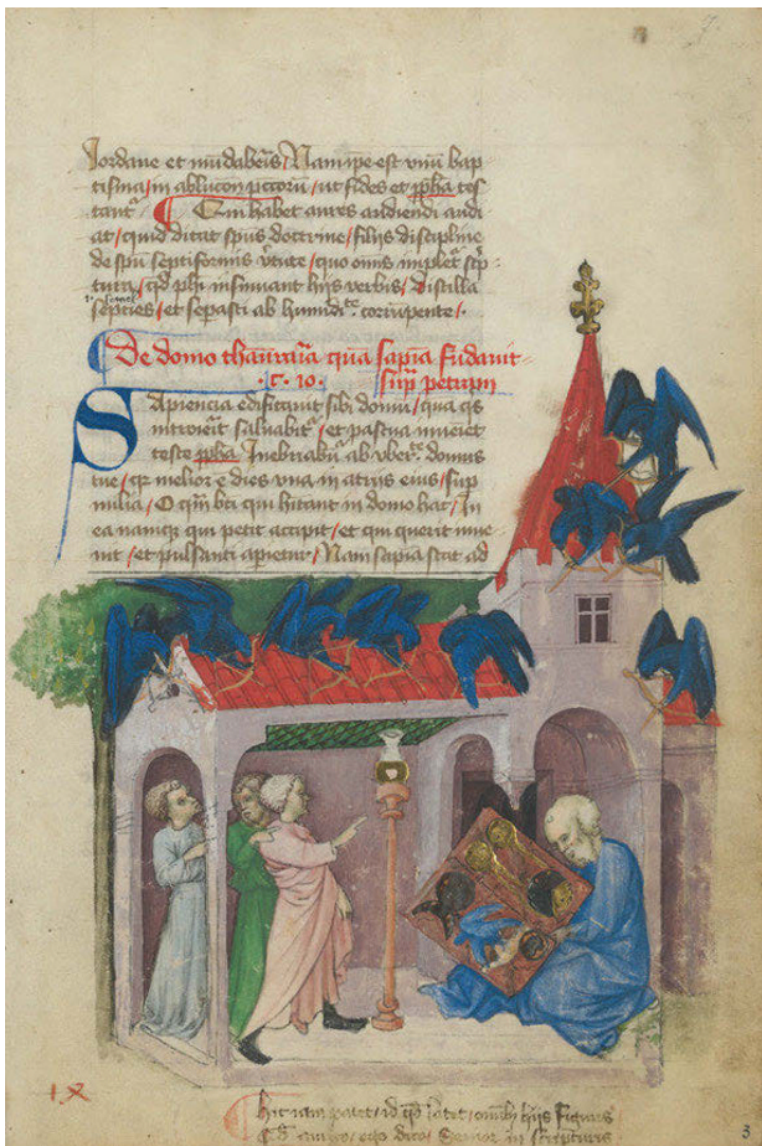 Jordane et mūdabēris / Nam ip̄e est vnū bap
tisma / in ablucōn pccorū / ut fides et ꝓpha tes
tantᷣ ¶ Qui habet aures audiendi audi
at / quid dicat spūs doctrine / filijs discipline
de spū septiformis v̄tute / quo om̄is impletᷣ sc̄p
tura / qd phi insinuant hijs verbis / Distilla
septies / et sepasti ab humidite corrūpente /.
De domo thaurāria quā sapīa fūdauit
.C. 10. / sup̄ petram
Sapiencia edificauit sibi domū / quā q̄s
introierit saluabitᷣ / et pascua inueiet
teste ꝓpha Inebriabūtᷣ ab vbertē domus
tue / qꝛ melior ē dies vna in atriis eius / sup
milia / O q̄m bti qui hītant in domo hac / In
ea namqꝫ qui petit accipit / et qui querit inue
nit / et pulsanti apietur / Nam sapīa stat ad
IX
Hic iam patet / id qd latet / om̄ibꝫ hijs figuris
dico / in scripturis
3